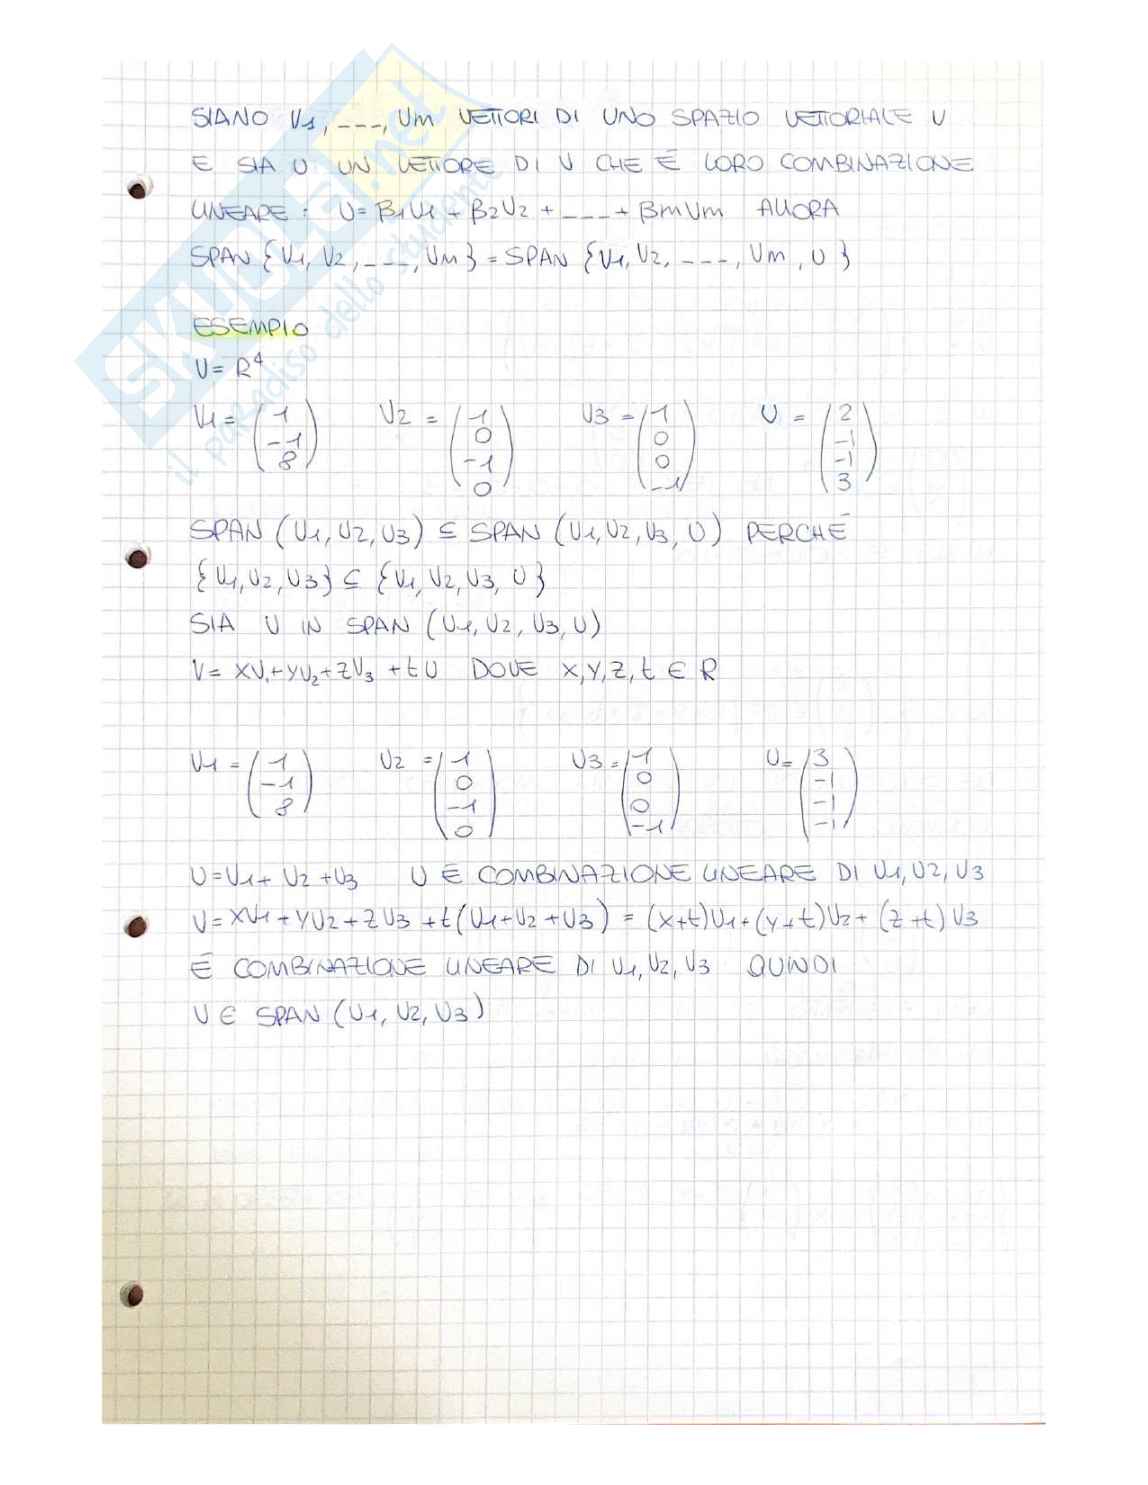 SIANO V1, ---, Vm VETTORI DI UNO SPAZIO VETTORIALE V
E SIA U UN VETTORE DI V CHE É LORO COMBINAZIONE
LINEARE: U= β1V1 + β2V2 + --- + βmVm ALLORA
SPAN {V1, V2, ---, Vm} = SPAN {V1, V2, ---, Vm, U}
ESEMPIO
V= R⁴
V1 = (1 -1 8) V2 = (1 0 -1 0) V3 = (1 0 0 -1) U = (2 -1 -1 3)
SPAN (V1, V2, V3) ⊆ SPAN (V1, V2, V3, U) PERCHÉ
{V1, V2, V3} ⊆ {V1, V2, V3, U}
SIA U IN SPAN (V1, V2, V3, U)
V= XV1+YV2+ZV3 +tU DOVE X,Y,Z,t ∈ R
V1 = (1 -1 8) V2 = (1 0 -1 0) V3 = (1 0 0 -1) U= (3 -1 -1 -1)
U=V1+ V2 +V3 U É COMBINAZIONE LINEARE DI V1, V2, V3
V= XV1 + YV2 + ZV3 +t(V1+V2+V3) = (x+t)V1+(y+t)V2+(z+t)V3
É COMBINAZIONE LINEARE DI V1, V2, V3 QUINDI
V ∈ SPAN (V1, V2, V3)
SKUOLA.net
il paradiso dello studente